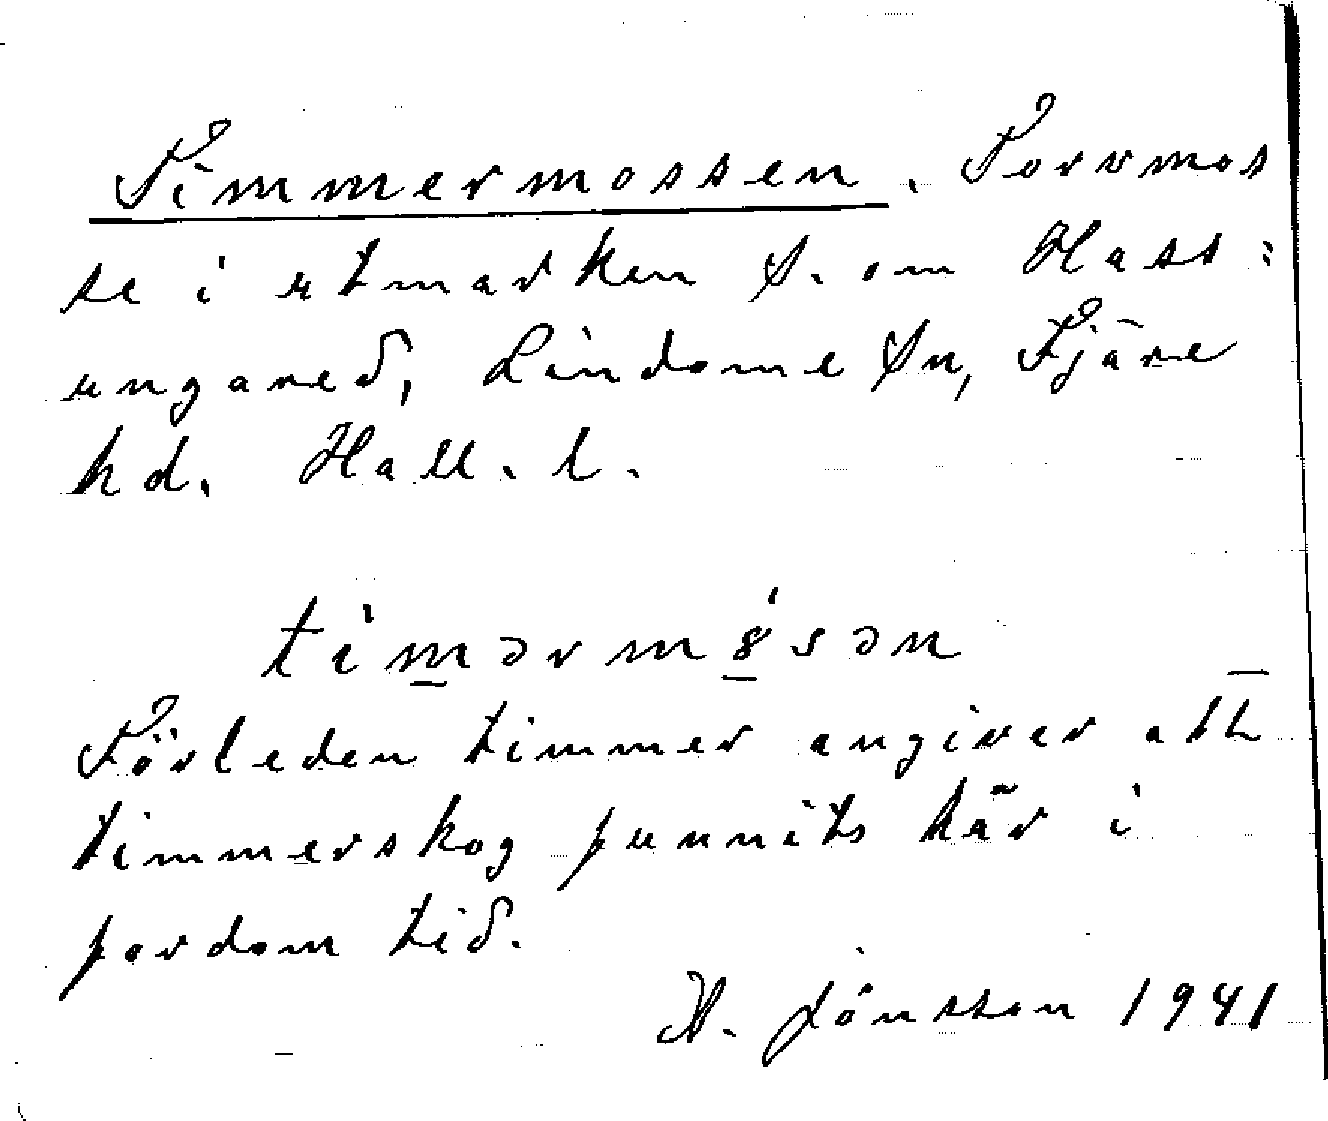 Timmermossen. Torvmos
se i utmarken S. om Hass:
ungared, Lindome Sn, Fjäre
hd. Hall. l.
ti'mərmȣ́sən
Förleden timmer angiver att
timmerskog funnits här i
fordom tid.
H. Jönsson 1941